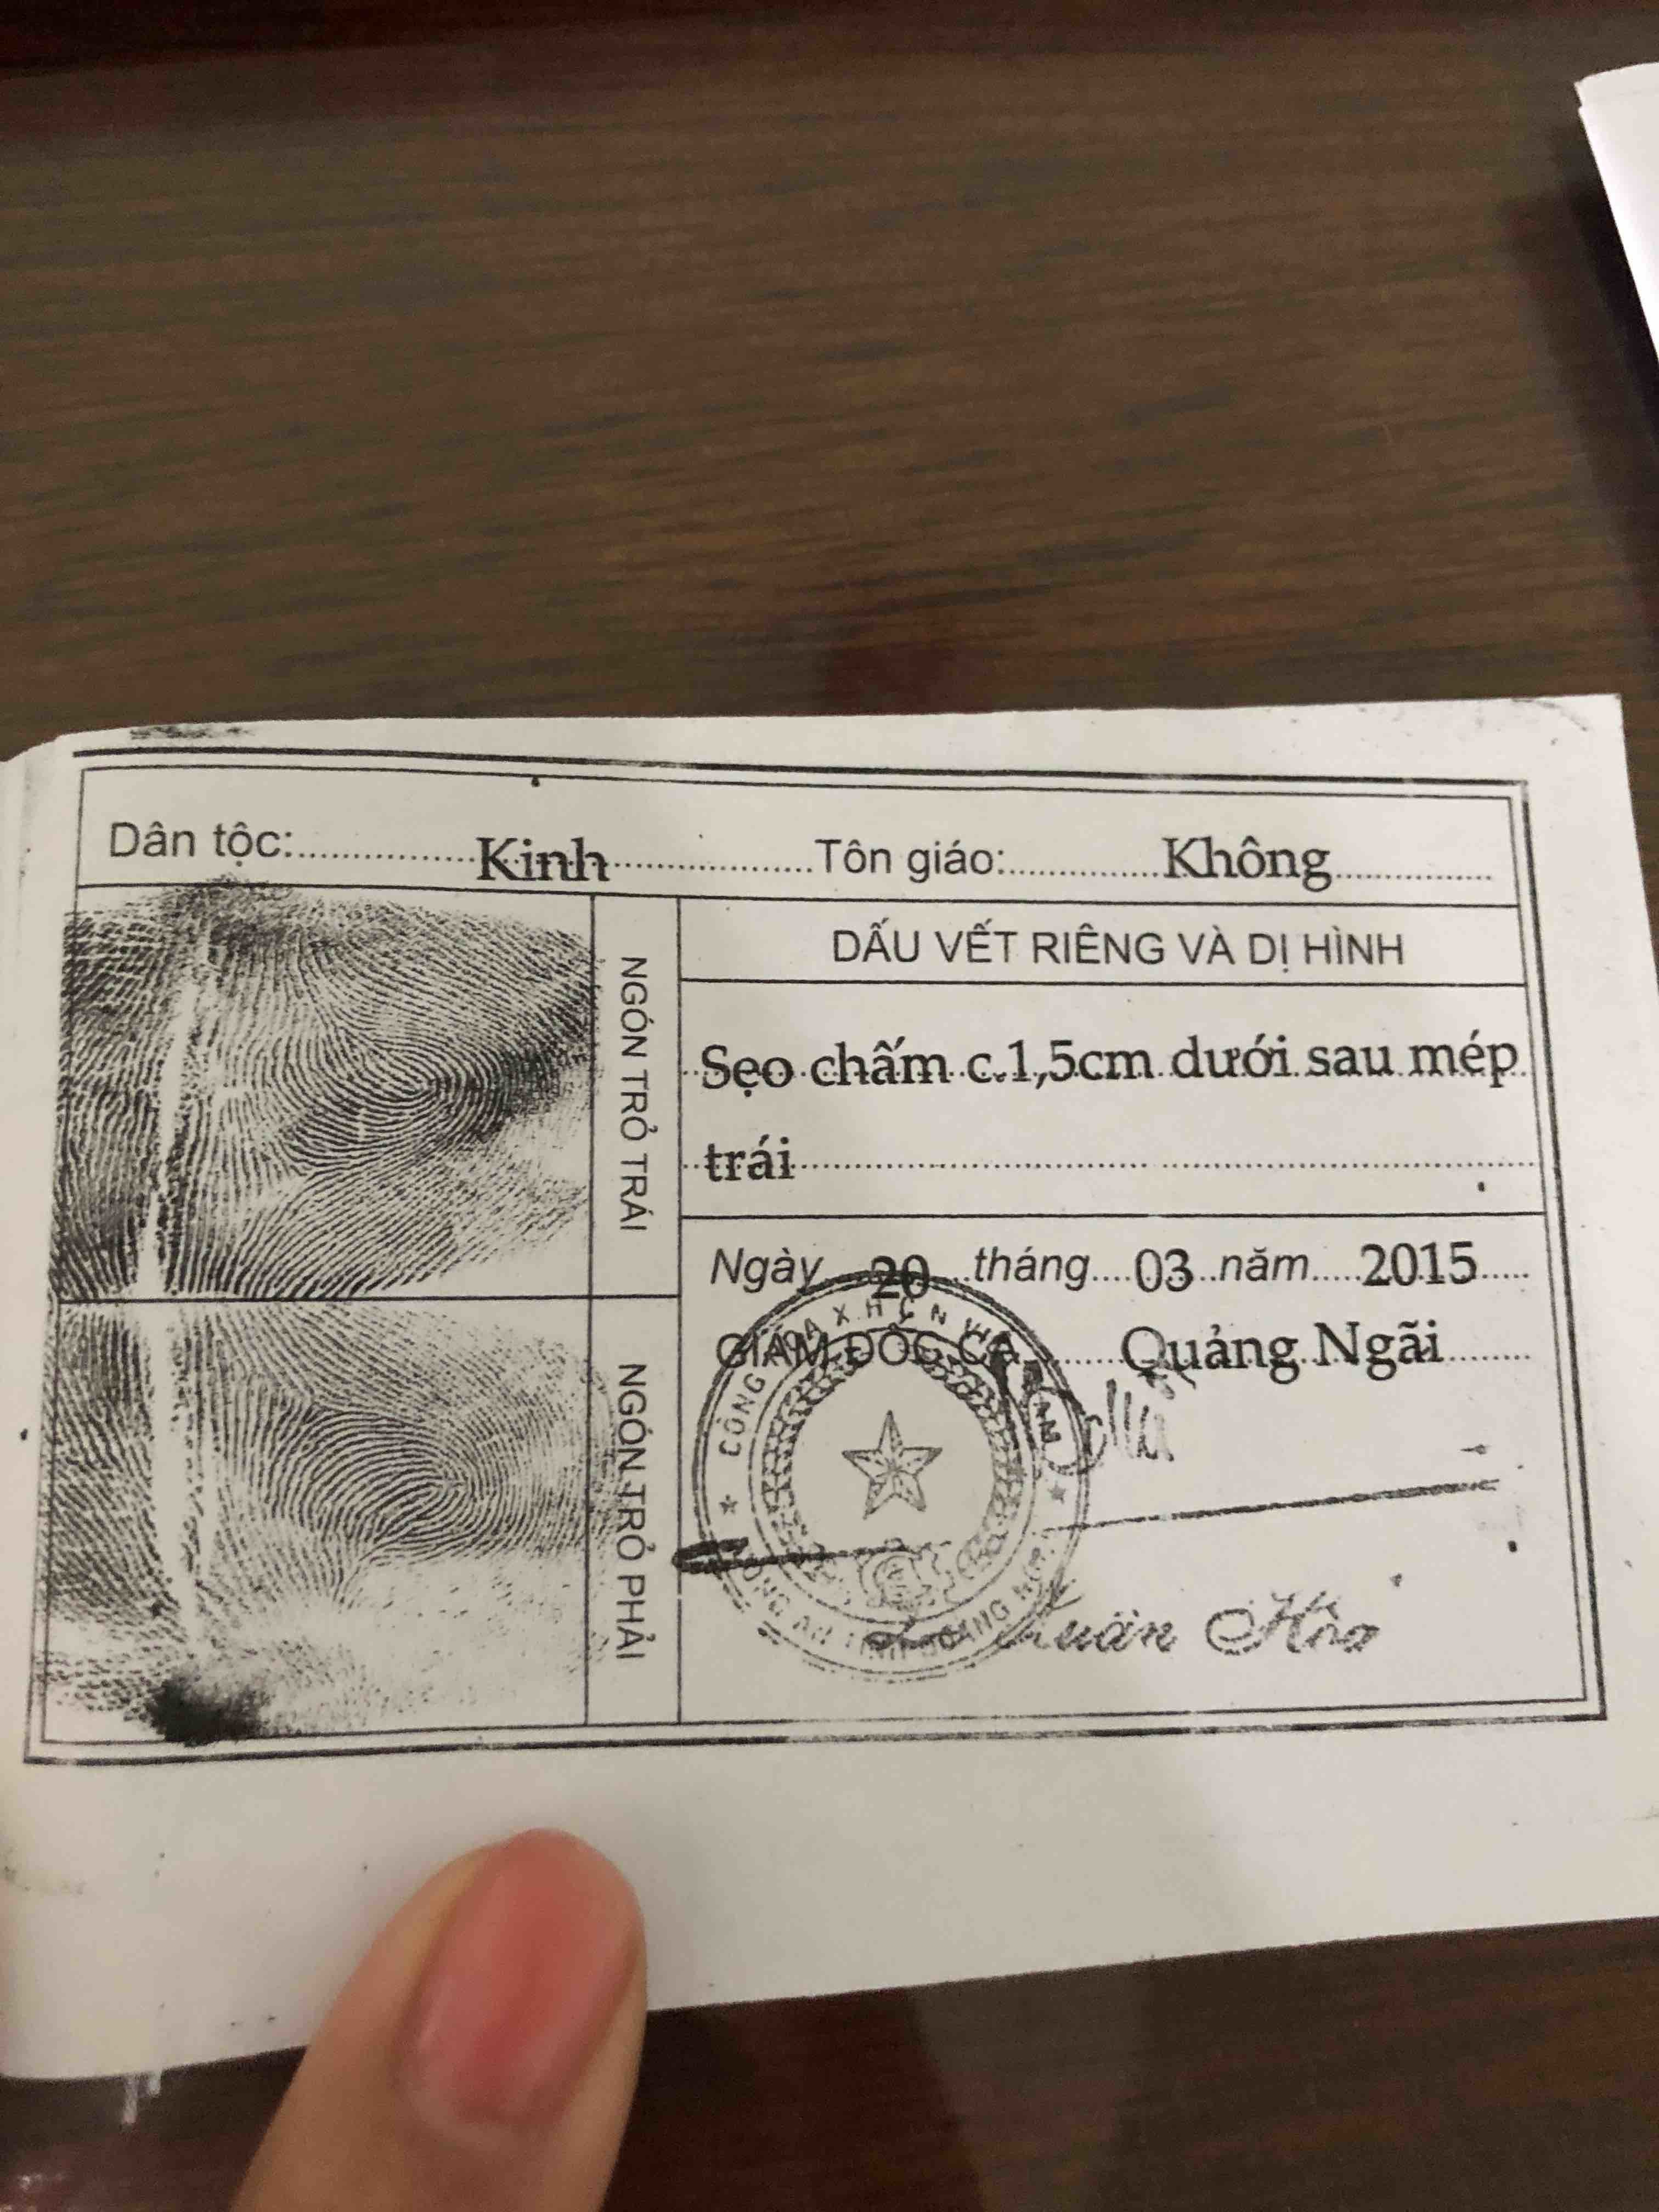 Dân tộc: Kinh Tôn giáo: Không
NGÓN TRỎ TRÁI
DẤU VẾT RIÊNG VÀ DỊ HÌNH
Sẹo chấm c.1,5cm dưới sau mép
trái
Ngày 20 tháng 03 năm 2015
GIÁM ĐỐC CA Quảng Ngãi
NGÓN TRỎ PHẢI
CÔNG HÒA X.H.C.N VIỆT NAM
CÔNG AN TỈNH QUẢNG NGÃI
Xuân Hòa